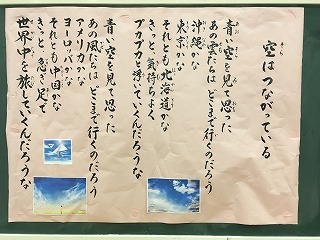 空はつながっている
青い空を見て思った
あの雲たちは どこまで行くのだろう
沖縄かな
東京かな
それとも北海道かな
きっと、気持ちよく
プカプカと浮いていくんだろうな
青い空を見て思った
あの風たちは どこまで行くのだろう
アメリカかな
ヨーロッパかな
それとも中国かな
きっと、急ぎ足で
世界中を旅していくんだろうな